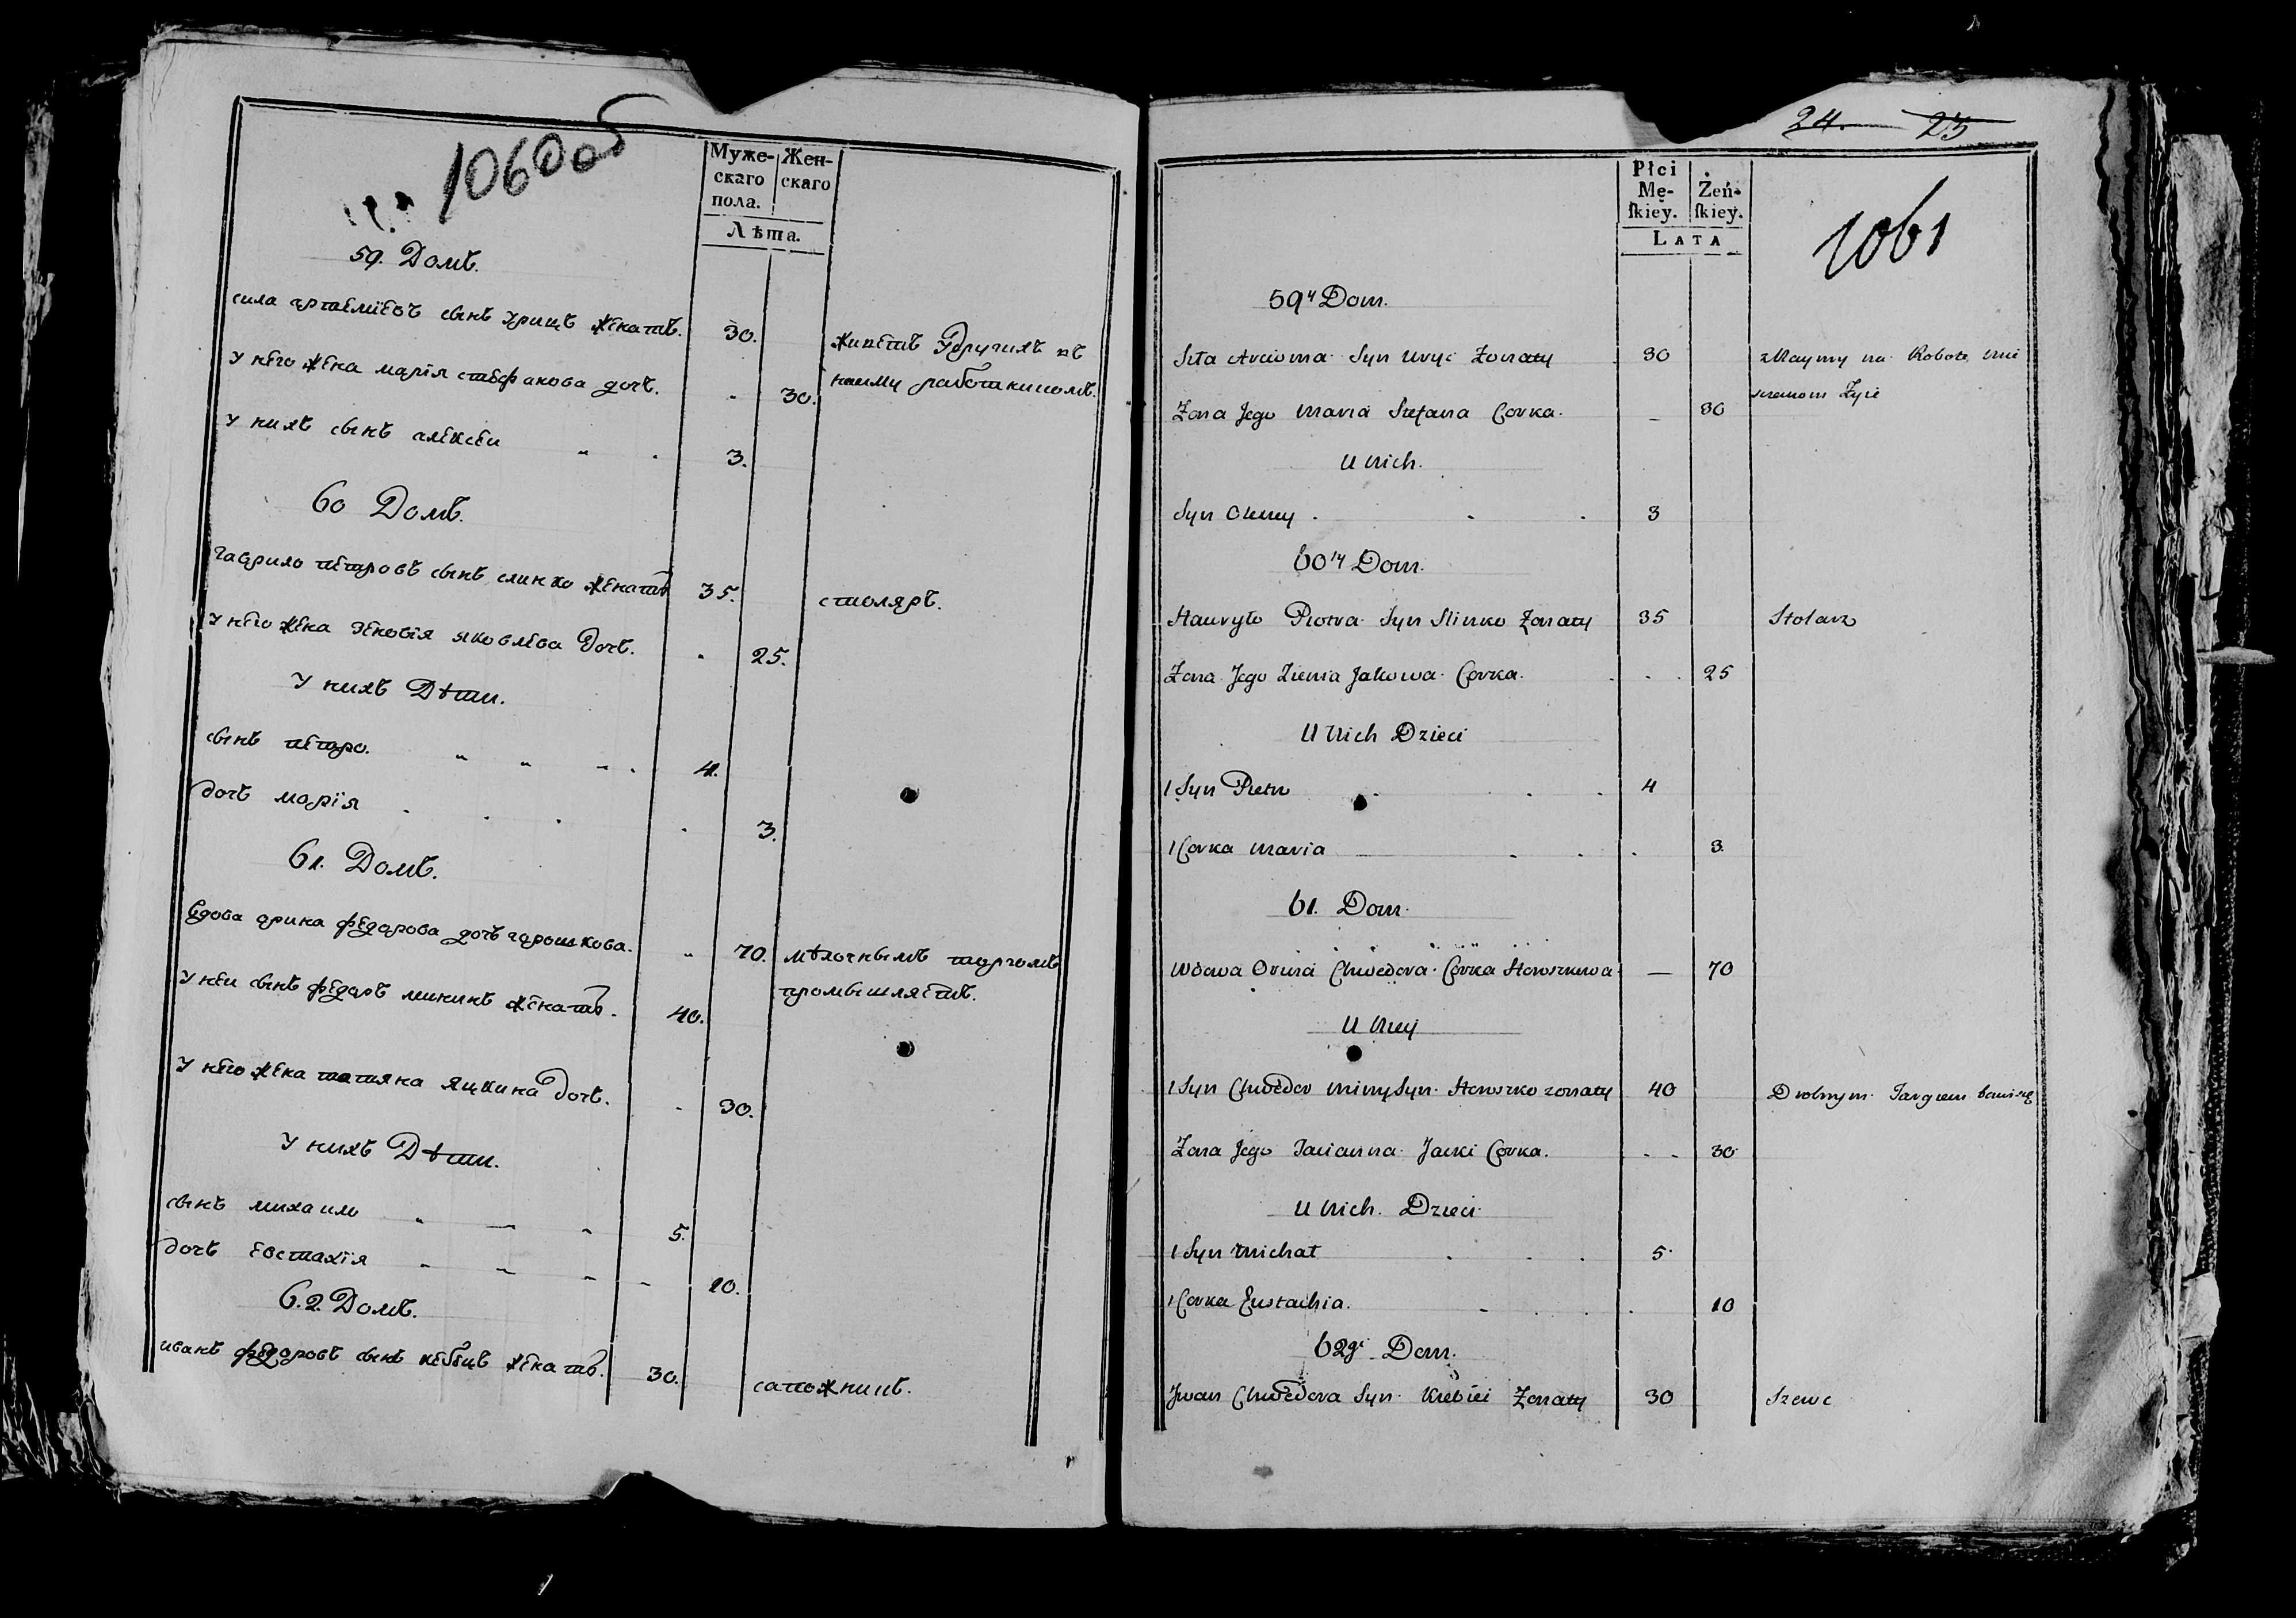 1060 об
Муже-
скаго
пола.
Жен-
скаго
Лѣта.
59. Домъ.
сила артемїевъ сынъ хрищъ женатъ. 30. живетъ удругихъ въ
наиму работникомъ.
у него жена марїя стефанова дочъ. 30.
у нихъ сынъ алексеи 3.
60 Домъ.
гаврило петровъ сынъ слинко женатъ 35. столяръ.
у него жена зеновїя яковлева дочъ. 25.
У нихъ Дѣти.
сынъ петро. 4.
дочъ марїя 3.
61. Домъ.
вдова арина федарова дочъ гарошкова. 70. мѣлочнымъ торгомъ
промышляетъ.
у неи сынъ федаръ мининъ женатъ. 40.
у него жена татяна яцкина дочъ. 30.
У нихъ Дѣти.
сынъ михаило 5.
дочъ евстахїя 10.
62. Домъ.
иванъ федаровъ сынъ кебецъ женатъ. 30. сапожникъ.
24. 25
Płci
Mę-
ſkiey.
Żeń-
ſkiey.
LATA
1061
59ty Dom.
Siła Arcioma Syn Żonaty 30 z Naymy na Robote
Żyie
Żona Jego Maria Stefana Corka. — 30
U Nich.
Syn Olexey 3
60ty Dom.
Hawryło Piotra Syn Slinko Żonaty 35 Stolarz
Żona Jego Zienia Jakowa Corka. 25
U Nich Dzieci
1 Syn Pietro 4
1 Corka Maria 3
61. Dom.
Wdowa Oryna Chwedora Corka Horoszkowa — 70
U Niey
1 Syn Chwedor Miny Syn Horoszko zonaty 40 Drobnym Targiem bawi się
Żona Jego Tacianna Jacki Corka. 30
U Nich Dzieci
1 Syn Michał 5
1 Corka Eustachia. 10
62gi Dom.
Jwan Chwedora Syn Kiebiec Żonaty 30 Szewc